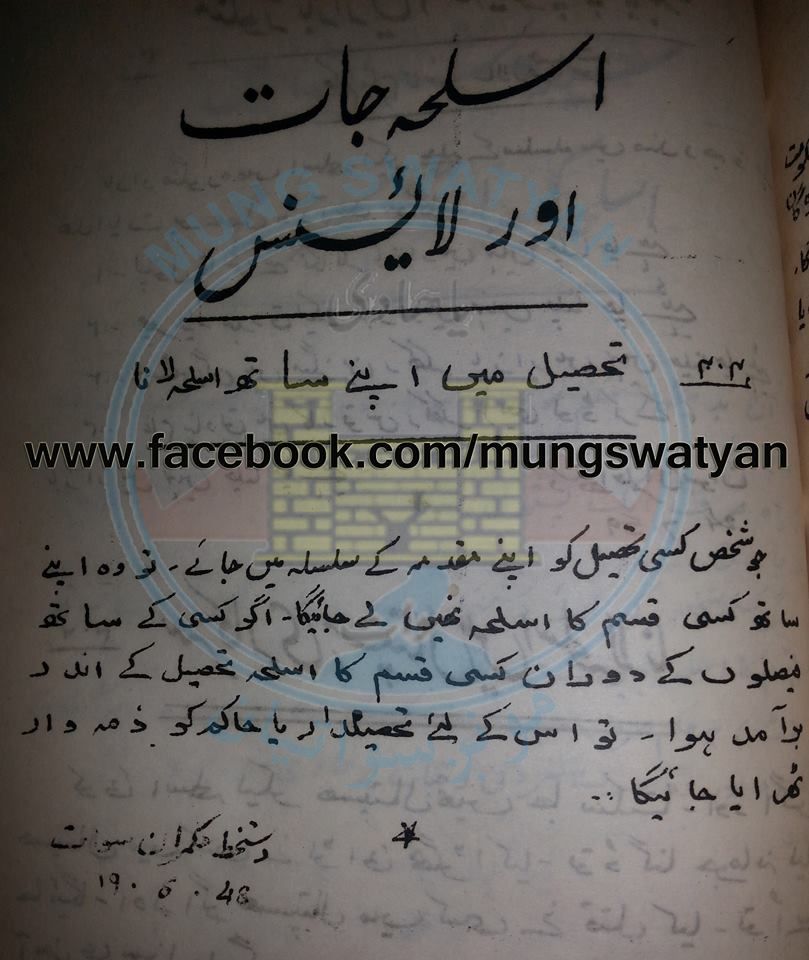 اسلحہ جات
اور لائیسنس
MUNG SWATYAN
۳۰۳ تحصیل میں اپنے ساتھ اسلحہ لانا
www.facebook.com/mungswatyan
جو شخص کسی تحصیل کو اپنے مقدمہ کے سلسلہ میں جائے۔ تو وہ اپنے
ساتھ کسی قسم کا اسلحہ نہیں لے جائیگا۔ اگر کسی کے ساتھ
فیصلوں کے دوران کسی قسم کا اسلحہ تحصیل کے اندر
برآمد ہوا۔ تو اس کے لئے تحصیلدار یا حاکم کو ذمہ وار
ٹھرایا جائیگا۔۔
دستخط حکمران سوات
19.5.48